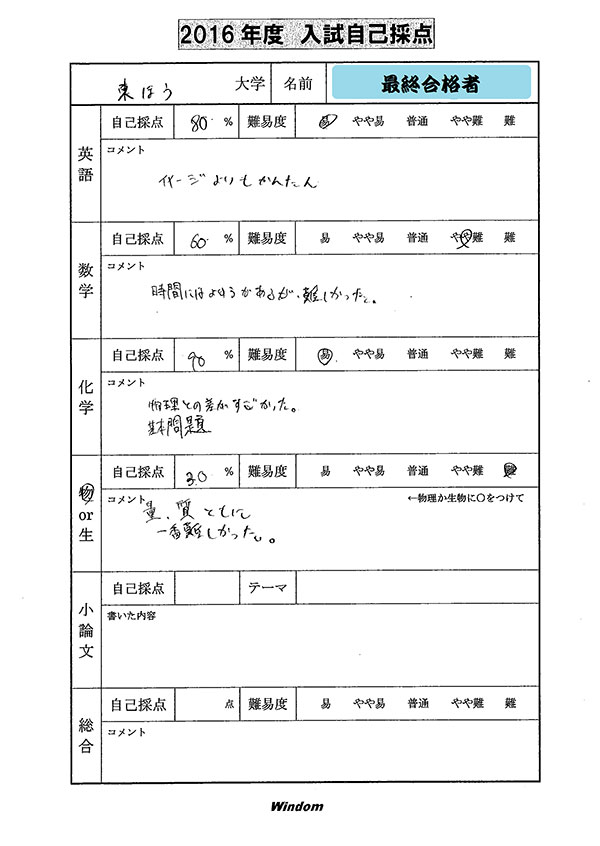 2016年度 入試自己採点
東ほう 大学 名前 最終合格者
英語
自己採点 80 % 難易度 易 やや易 普通 やや難 難
コメント
イメージよりもかんたん
数学
自己採点 60 % 難易度 易 やや易 普通 やや難 難
コメント
時間にはよゆうがあるが、難しかった。
化学
自己採点 90 % 難易度 易 やや易 普通 やや難 難
コメント
物理との差がすごかった。
基本問題
物or生
自己採点 30 % 難易度 易 やや易 普通 やや難 難
コメント ←物理か生物に〇をつけて
量、質ともに
一番難しかった。
小論文
自己採点 テーマ
書いた内容
総合
自己採点 点 難易度 易 やや易 普通 やや難 難
コメント
Windom